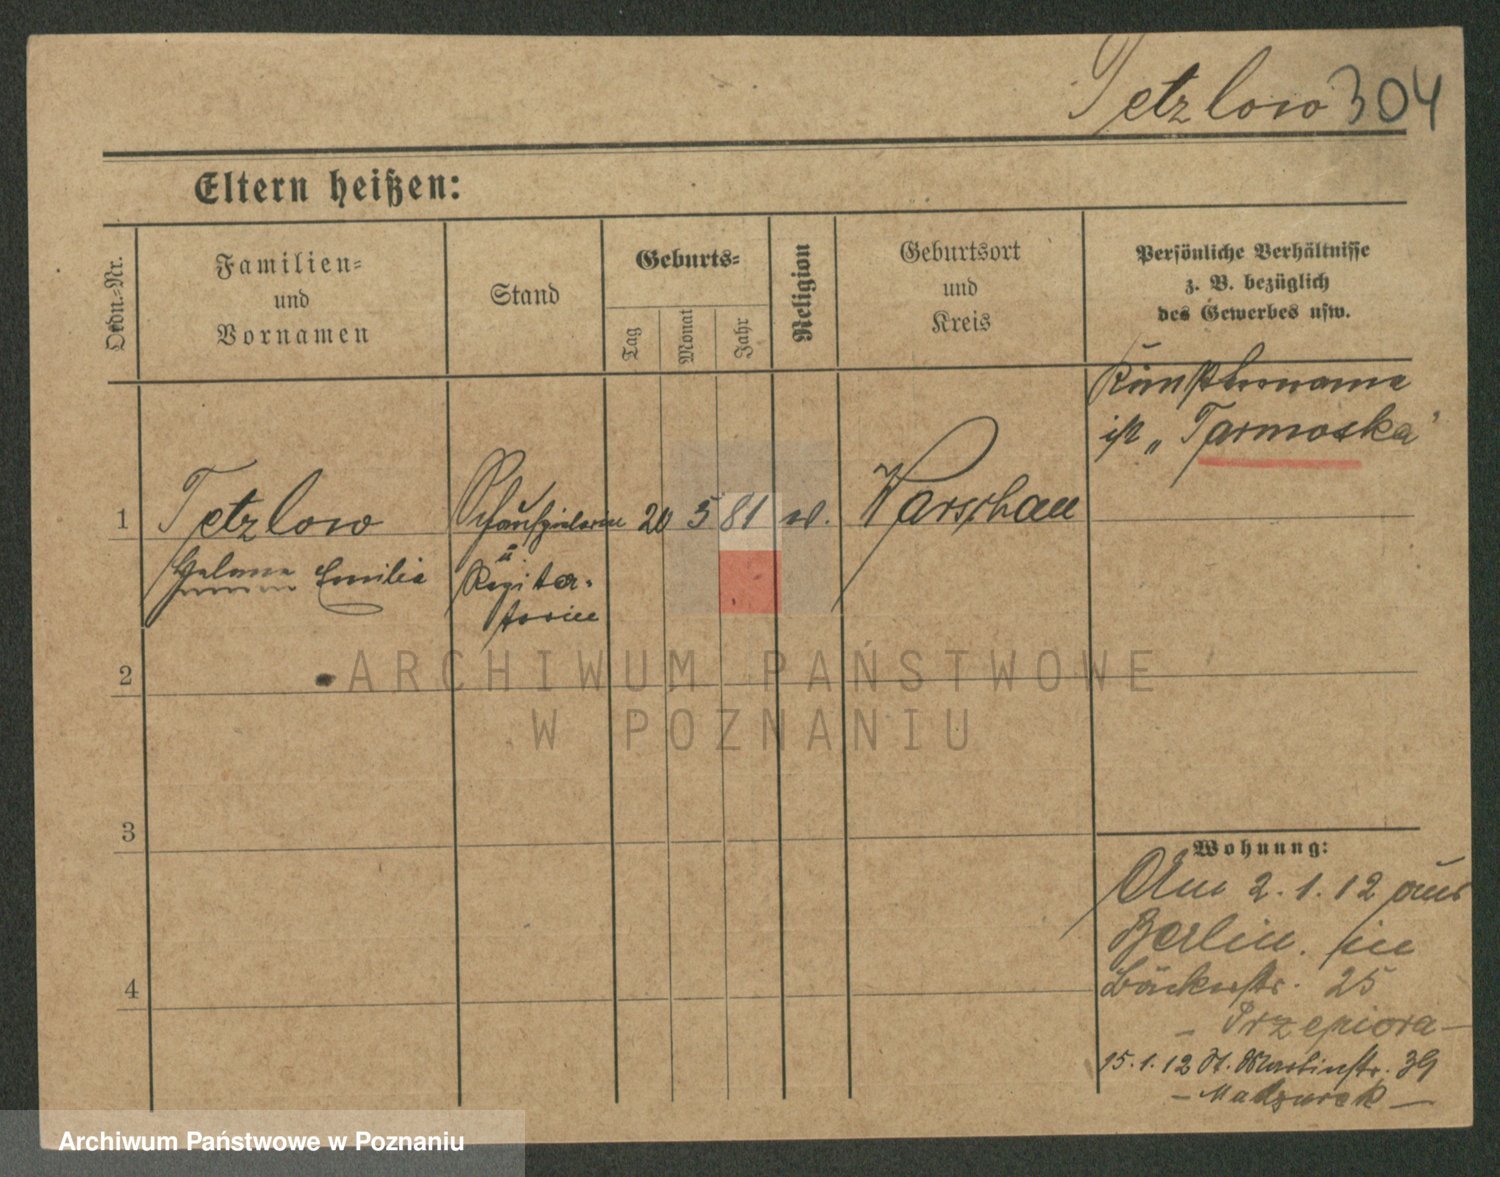 Tetzlow 304
Eltern heißen:
Ordn.-Nr.
Familien- und Vornamen
Stand
Geburts-
Tag
Monat
Jahr
Religion
Geburtsort und Kreis
Persönliche Verhältnisse
z. B. bezüglich
des Gewerbes usw.
Künstlername
ist „Tarmoska"
1 Tetzlow Schauspielerin 20 5 81 Warschau
Helene Emilie
u
2
3
4
Wohnung:
Am 2. 1. 12 aus
Berlin. in
Bäckerstr. 25
- Przepiora -
15. 1. 12 St. Martinstr. 39
- Madzurek -
ARCHIWUM PAŃSTWOWE
W POZNANIU
Archiwum Państwowe w Poznaniu